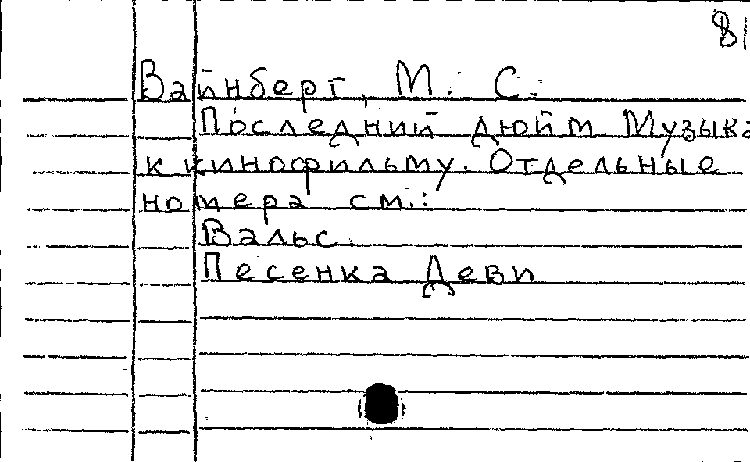 81
Вайнберг, М. С.
Последний дюйм Музыка
к кинофильму. Отдельные
номера см.:
Вальс.
Песенка Деви